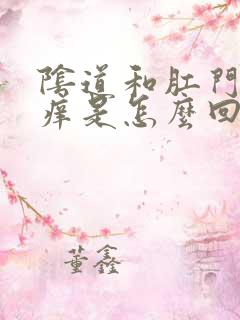 陰道和肛門
痒是怎麼回
董鑫